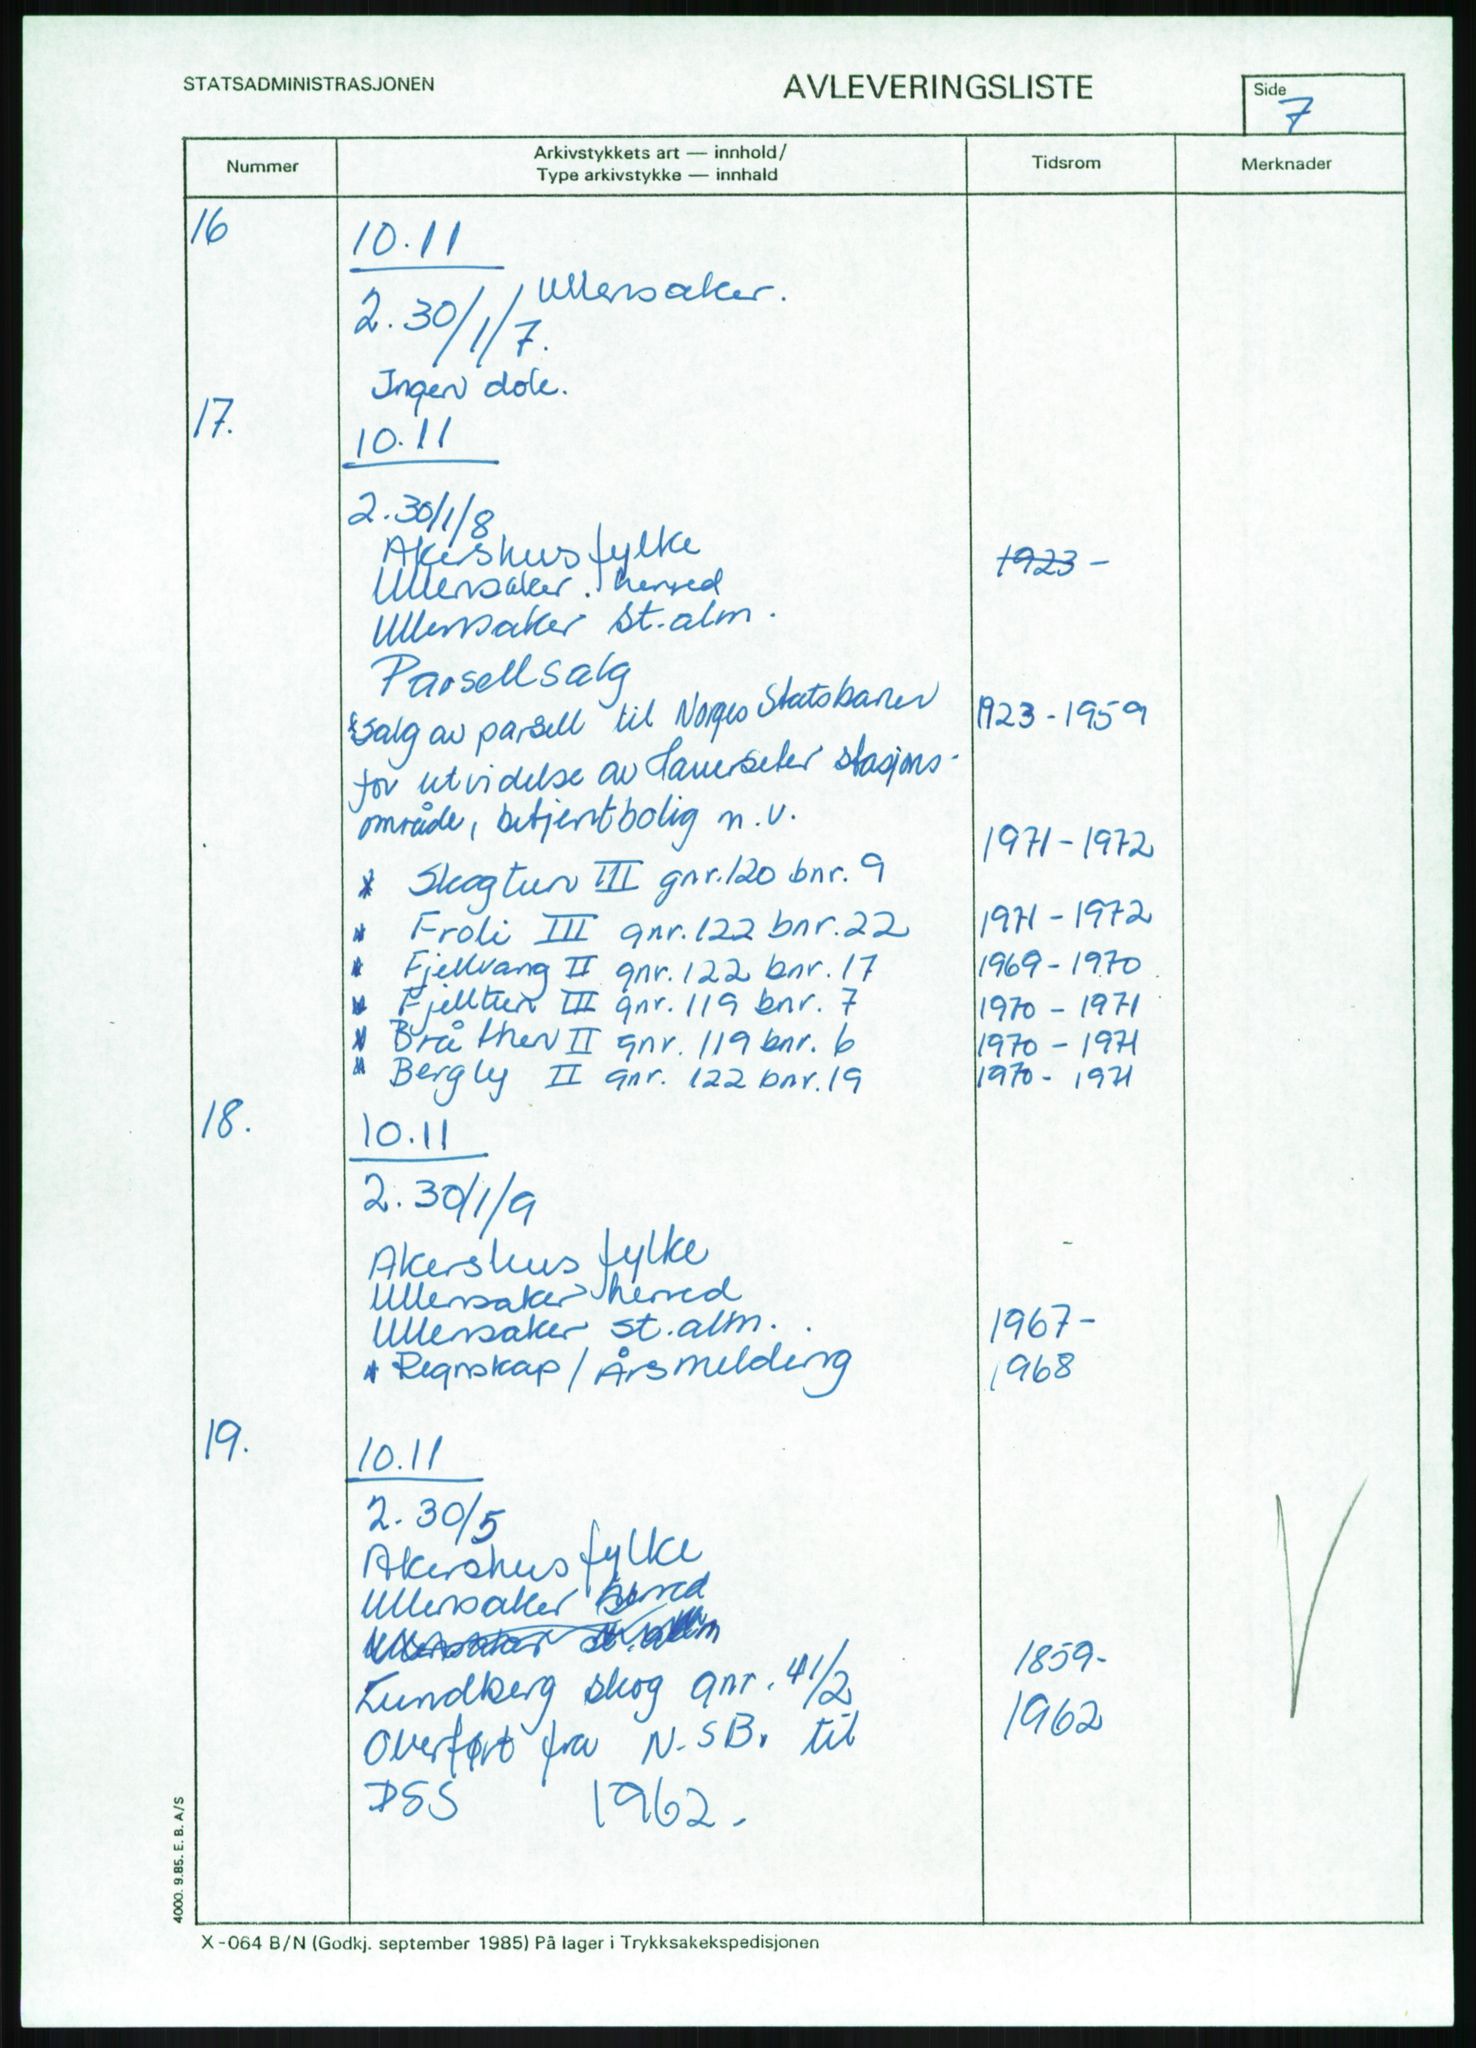 STATSADMINISTRASJONEN
AVLEVERINGSLISTE
Side
7
Nummer
Arkivstykkets art — innhold/
Type arkivstykke — innhald
Tidsrom
Merknader
16
10.11
2.30/1/7. Ullensaker.
Ingen dok.
17.
10.11
2.30/1/8
Akershus fylke
1923 -
Ullensaker herred
Ullensaker st.alm.
Parsellsalg
* Salg av parsell til Norges Statsbaner
1923 - 1959
for utvidelse av Hauerseter stasjons-
område, betjentbolig m.v.
* Skogtun III gnr.120 bnr. 9
1971 - 1972
* Froli III gnr.122 bnr.22
1971 - 1972
* Fjellvang II gnr.122 bnr.17
1969 - 1970
* Fjelltun III gnr.119 bnr. 7
1970 - 1971
* Bråthen II gnr. 119 bnr. 6
1970 - 1971
* Bergly II gnr. 122 bnr.19
1970 - 1971
18.
10.11
2.30/1/9
Akershus fylke
Ullensaker herred
Ullensaker st.alm.
1967 -
* Regnskap / Årsmelding
1968
19.
10.11
2.30/5
Akershus fylke
Ullensaker herred
Ullensaker st.alm
Lundberg skog gnr. 41/2
1859-
Overført fra N.S.B. til
1962
DSS 1962.
4000. 9.85. E. B. A/S
X-064 B/N (Godkj. september 1985) På lager i Trykksakekspedisjonen